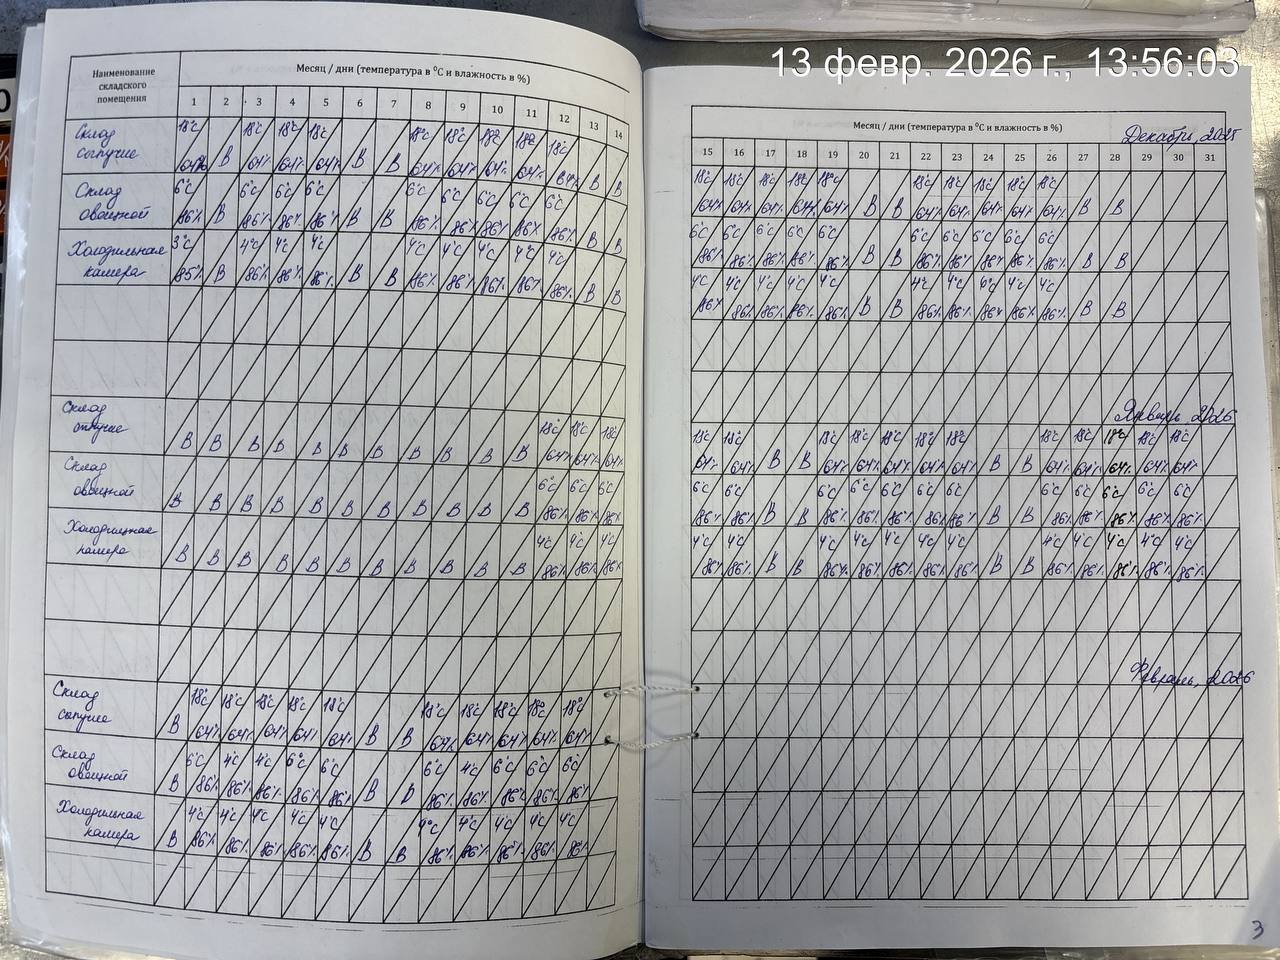 13 февр. 2026 г., 13:56:03
Наименование
складского
помещения
Месяц / дни (температура в ⁰С и влажность в %)
1 2 3 4 5 6 7 8 9 10 11 12 13 14
Склад
сыпучие
18°С 18°С 18°С 18°С 18°С 18°С 18°С 18°С 18°С
64% В 64% 64% 64% В В 64% 64% 64% 64% 64% В В
Склад
овощной
6°С 6°С 6°С 6°С 6°С 6°С 6°С 6°С 6°С
86% В 86% 86% 86% В В 86% 86% 86% 86% 86% В В
Холодильная
камера
3°С 4°С 4°С 4°С 4°С 4°С 4°С 4°С 4°С
85% В 86% 86% 86% В В 86% 86% 86% 86% 86% В В
Склад
сыпучие
18°С 18°С 18°С
В В В В В В В В В В В 64% 64% 64%
Склад
овощной
6°С 6°С 6°С
В В В В В В В В В В В 86% 86% 86%
Холодильная
камера
4°С 4°С 4°С
В В В В В В В В В В В 86% 86% 86%
Склад
сыпучие
18°С 18°С 18°С 18°С 18°С 18°С 18°С 18°С 18°С 18°С
В 64% 64% 64% 64% 64% В В 64% 64% 64% 64% 64%
Склад
овощной
6°С 4°С 4°С 6°С 6°С 6°С 4°С 6°С 6°С 6°С
В 86% 86% 86% 86% 86% В В 86% 86% 86% 86% 86%
Холодильная
камера
4°С 4°С 4°С 4°С 4°С 4°С 4°С 4°С 4°С 4°С
В 86% 86% 86% 86% 86% В В 86% 86% 86% 86% 86%
Месяц / дни (температура в ⁰С и влажность в %)
Декабрь, 2025
15 16 17 18 19 20 21 22 23 24 25 26 27 28 29 30 31
18°С 18°С 18°С 18°С 18°С 18°С 18°С 18°С 18°С 18°С
64% 64% 64% 64% 64% В В 64% 64% 64% 64% 64% В В
6°С 6°С 6°С 6°С 6°С 6°С 6°С 6°С 6°С 6°С
86% 86% 86% 86% 86% В В 86% 86% 86% 86% 86% В В
4°С 4°С 4°С 4°С 4°С 4°С 4°С 4°С 4°С
86% 86% 86% 86% 86% В В 86% 86% 86% 86% 86% В В
Январь, 2026
18°С 18°С 18°С 18°С 18°С 18°С 18°С 18°С 18°С 18°С 18°С 18°С
64% 64% В В 64% 64% 64% 64% 64% В В 64% 64% 64% 64% 64%
6°С 6°С 6°С 6°С 6°С 6°С 6°С 6°С 6°С 6°С 6°С 6°С
86% 86% В В 86% 86% 86% 86% 86% В В 86% 86% 86% 86% 86%
4°С 4°С 4°С 4°С 4°С 4°С 4°С 4°С 4°С 4°С 4°С 4°С
86% 86% В В 86% 86% 86% 86% 86% В В 86% 86% 86% 86% 86%
Февраль, 2026
3